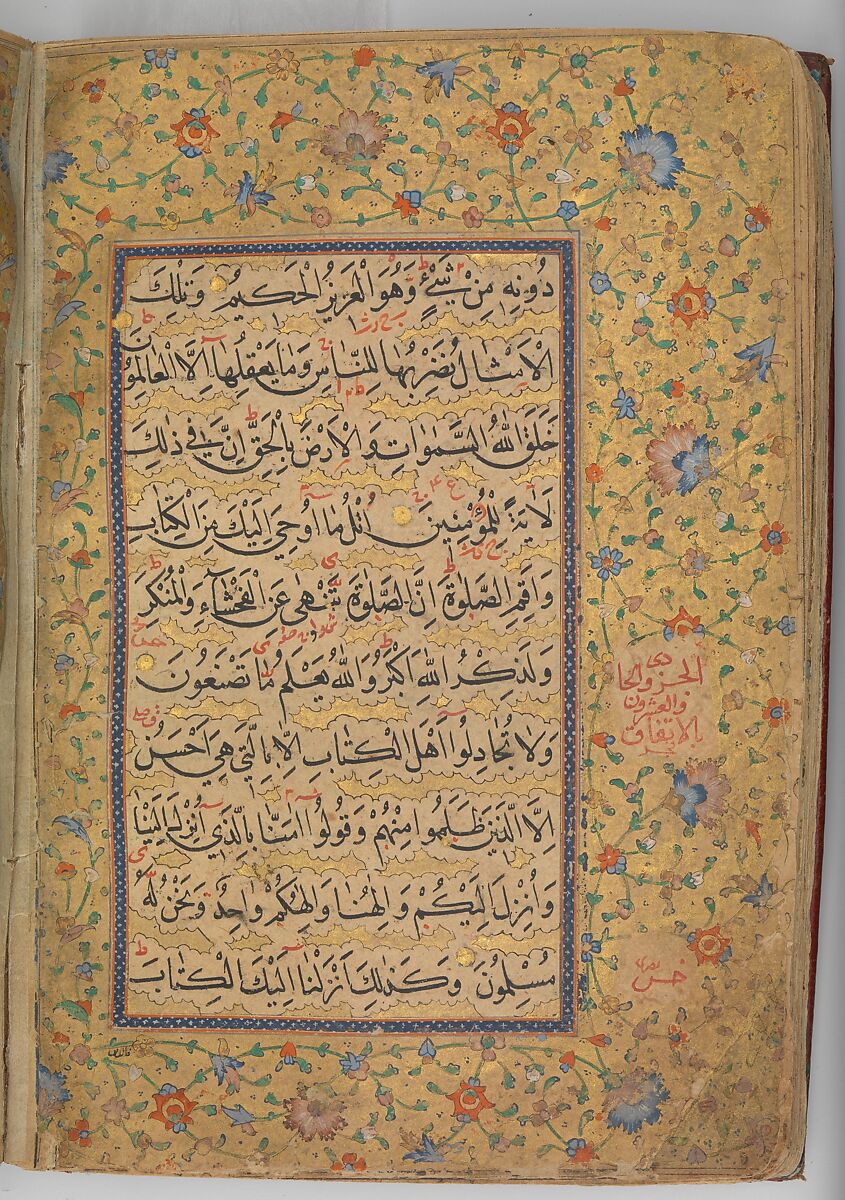 دُونِهٖ مِنْ شَيْءٍ وَهُوَ الْعَزِيزُ الْحَكِيمُ وَتِلْكَ
الْاَمْثَالُ نَضْرِبُهَا لِلنَّاسِ وَمَا يَعْقِلُهَا اِلَّا الْعَالِمُونَ
خَلَقَ اللّٰهُ السَّمٰوَاتِ وَالْاَرْضَ بِالْحَقِّ اِنَّ فِي ذٰلِكَ
لَاٰيَةً لِلْمُؤْمِنِينَ اُتْلُ مَا اُوحِيَ اِلَيْكَ مِنَ الْكِتَابِ
وَاَقِمِ الصَّلٰوةَ اِنَّ الصَّلٰوةَ تَنْهٰى عَنِ الْفَحْشَاءِ وَالْمُنْكَرِ
وَلَذِكْرُ اللّٰهِ اَكْبَرُ وَاللّٰهُ يَعْلَمُ مَا تَصْنَعُونَ
وَلَا تُجَادِلُوا اَهْلَ الْكِتَابِ اِلَّا بِالَّتِي هِيَ اَحْسَنُ
اِلَّا الَّذِينَ ظَلَمُوا مِنْهُمْ وَقُولُوا اٰمَنَّا بِالَّذِي اُنْزِلَ اِلَيْنَا
وَاُنْزِلَ اِلَيْكُمْ وَاِلٰهُنَا وَاِلٰهُكُمْ وَاحِدٌ وَنَحْنُ لَهُ
مُسْلِمُونَ وَكَذٰلِكَ اَنْزَلْنَا اِلَيْكَ الْكِتَابَ
الجزو الحادي
والعشرون
بالاتفاق